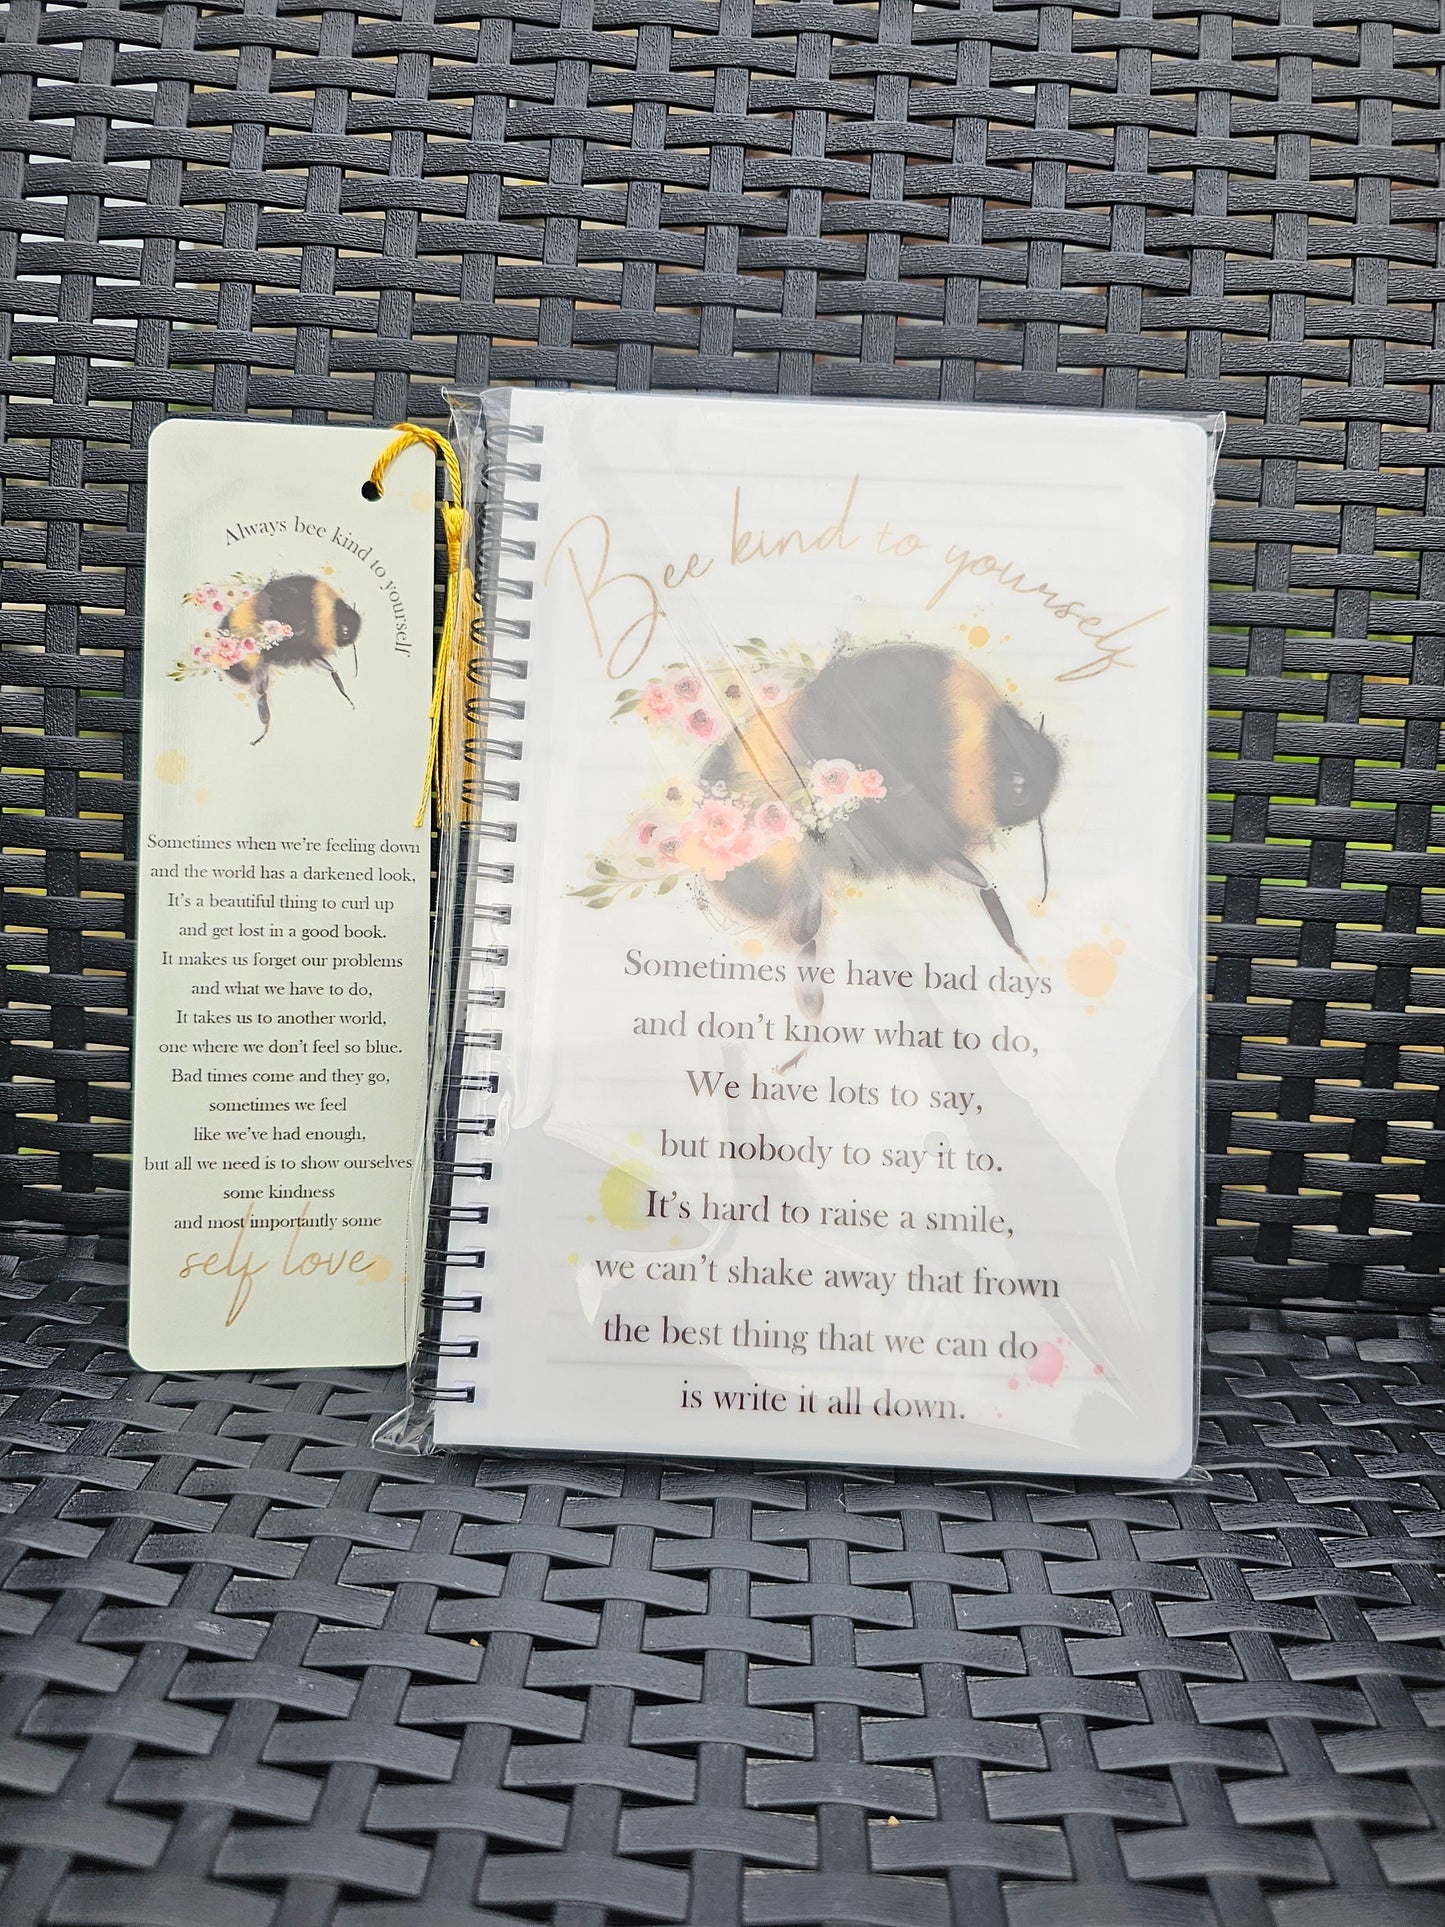 Always bee kind to yourself
Sometimes when we're feeling down
and the world has a darkened look,
It's a beautiful thing to curl up
and get lost in a good book.
It makes us forget our problems
and what we have to do,
It takes us to another world,
one where we don't feel so blue.
Bad times come and they go,
sometimes we feel
like we've had enough,
but all we need is to show ourselves
some kindness
and most importantly some
self love
Bee kind to yourself
Sometimes we have bad days
and don't know what to do,
We have lots to say,
but nobody to say it to.
It's hard to raise a smile,
we can't shake away that frown
the best thing that we can do
is write it all down.